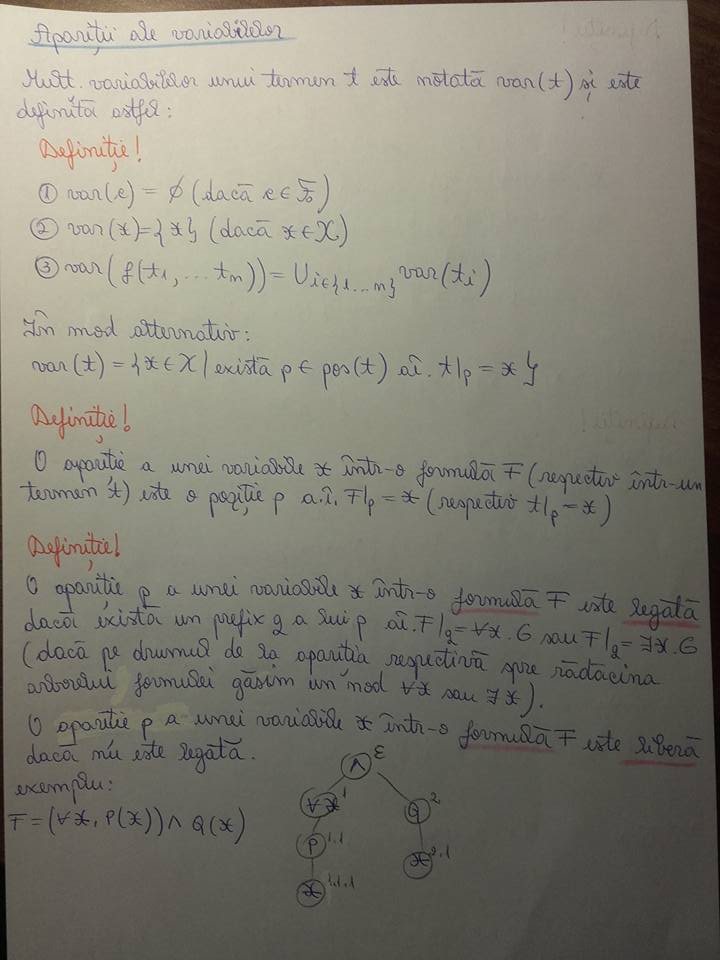 Apariții ale variabilelor
Mult. variabilelor unui termen t este notată var(t) și este
definită astfel:
Definiție!
① var(c) = ∅ (dacă c ∈ F₀)
② var(x) = {x} (dacă x ∈ X)
③ var(f(t₁, ... tₙ)) = ∪ᵢ∈{1...n} var(tᵢ)
În mod alternativ:
var(t) = {x ∈ X | există p ∈ pos(t) aî. t|p = x}
Definiție!
O apariție a unei variabile x într-o formulă F (respectiv într-un
termen t) este o poziție p a.î. F|p = x (respectiv t|p = x)
Definiție!
O apariție p a unei variabile x într-o formulă F este legată
dacă există un prefix q a lui p aî. F|q = ∀x.G sau F|q = ∃x.G
(dacă pe drumul de la apariția respectivă spre rădăcina
arborelui formulei găsim un nod ∀x sau ∃x).
O apariție p a unei variabile x într-o formulă F este liberă
dacă nu este legată.
exemplu:
F = (∀x, P(x)) ∧ Q(x)
∧ ε
∀x 1
Q 2
P 1.1
x 2.1
x 1.1.1